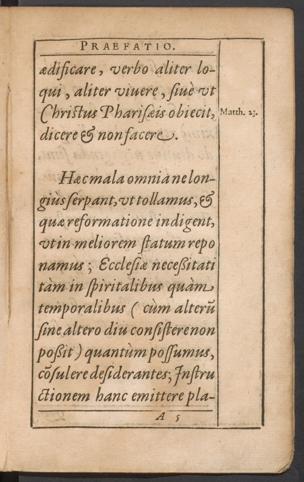 PRAEFATIO.
ædificare, verbo aliter lo-
qui, aliter viuere, siuè vt
Christus Pharisæis obiecit,
Matth. 23.
dicere & non facere.
Hæc mala omnia ne lon-
giùs serpant, vt tollamus, &
quæ reformatione indigent,
vt in meliorem statum repo
namus; Ecclesiæ necessitati
tàm in spiritalibus quàm
temporalibus (cùm alterũ
sine altero diu consistere non
possit) quantùm possumus,
cõsulere desiderantes; Instru
ctionem hanc emittere pla-
A 5